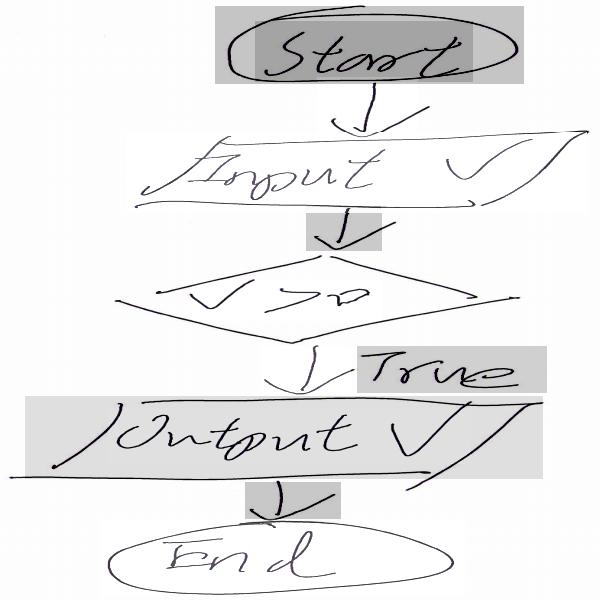 Start
Input V
V > 0
True
Output V
End